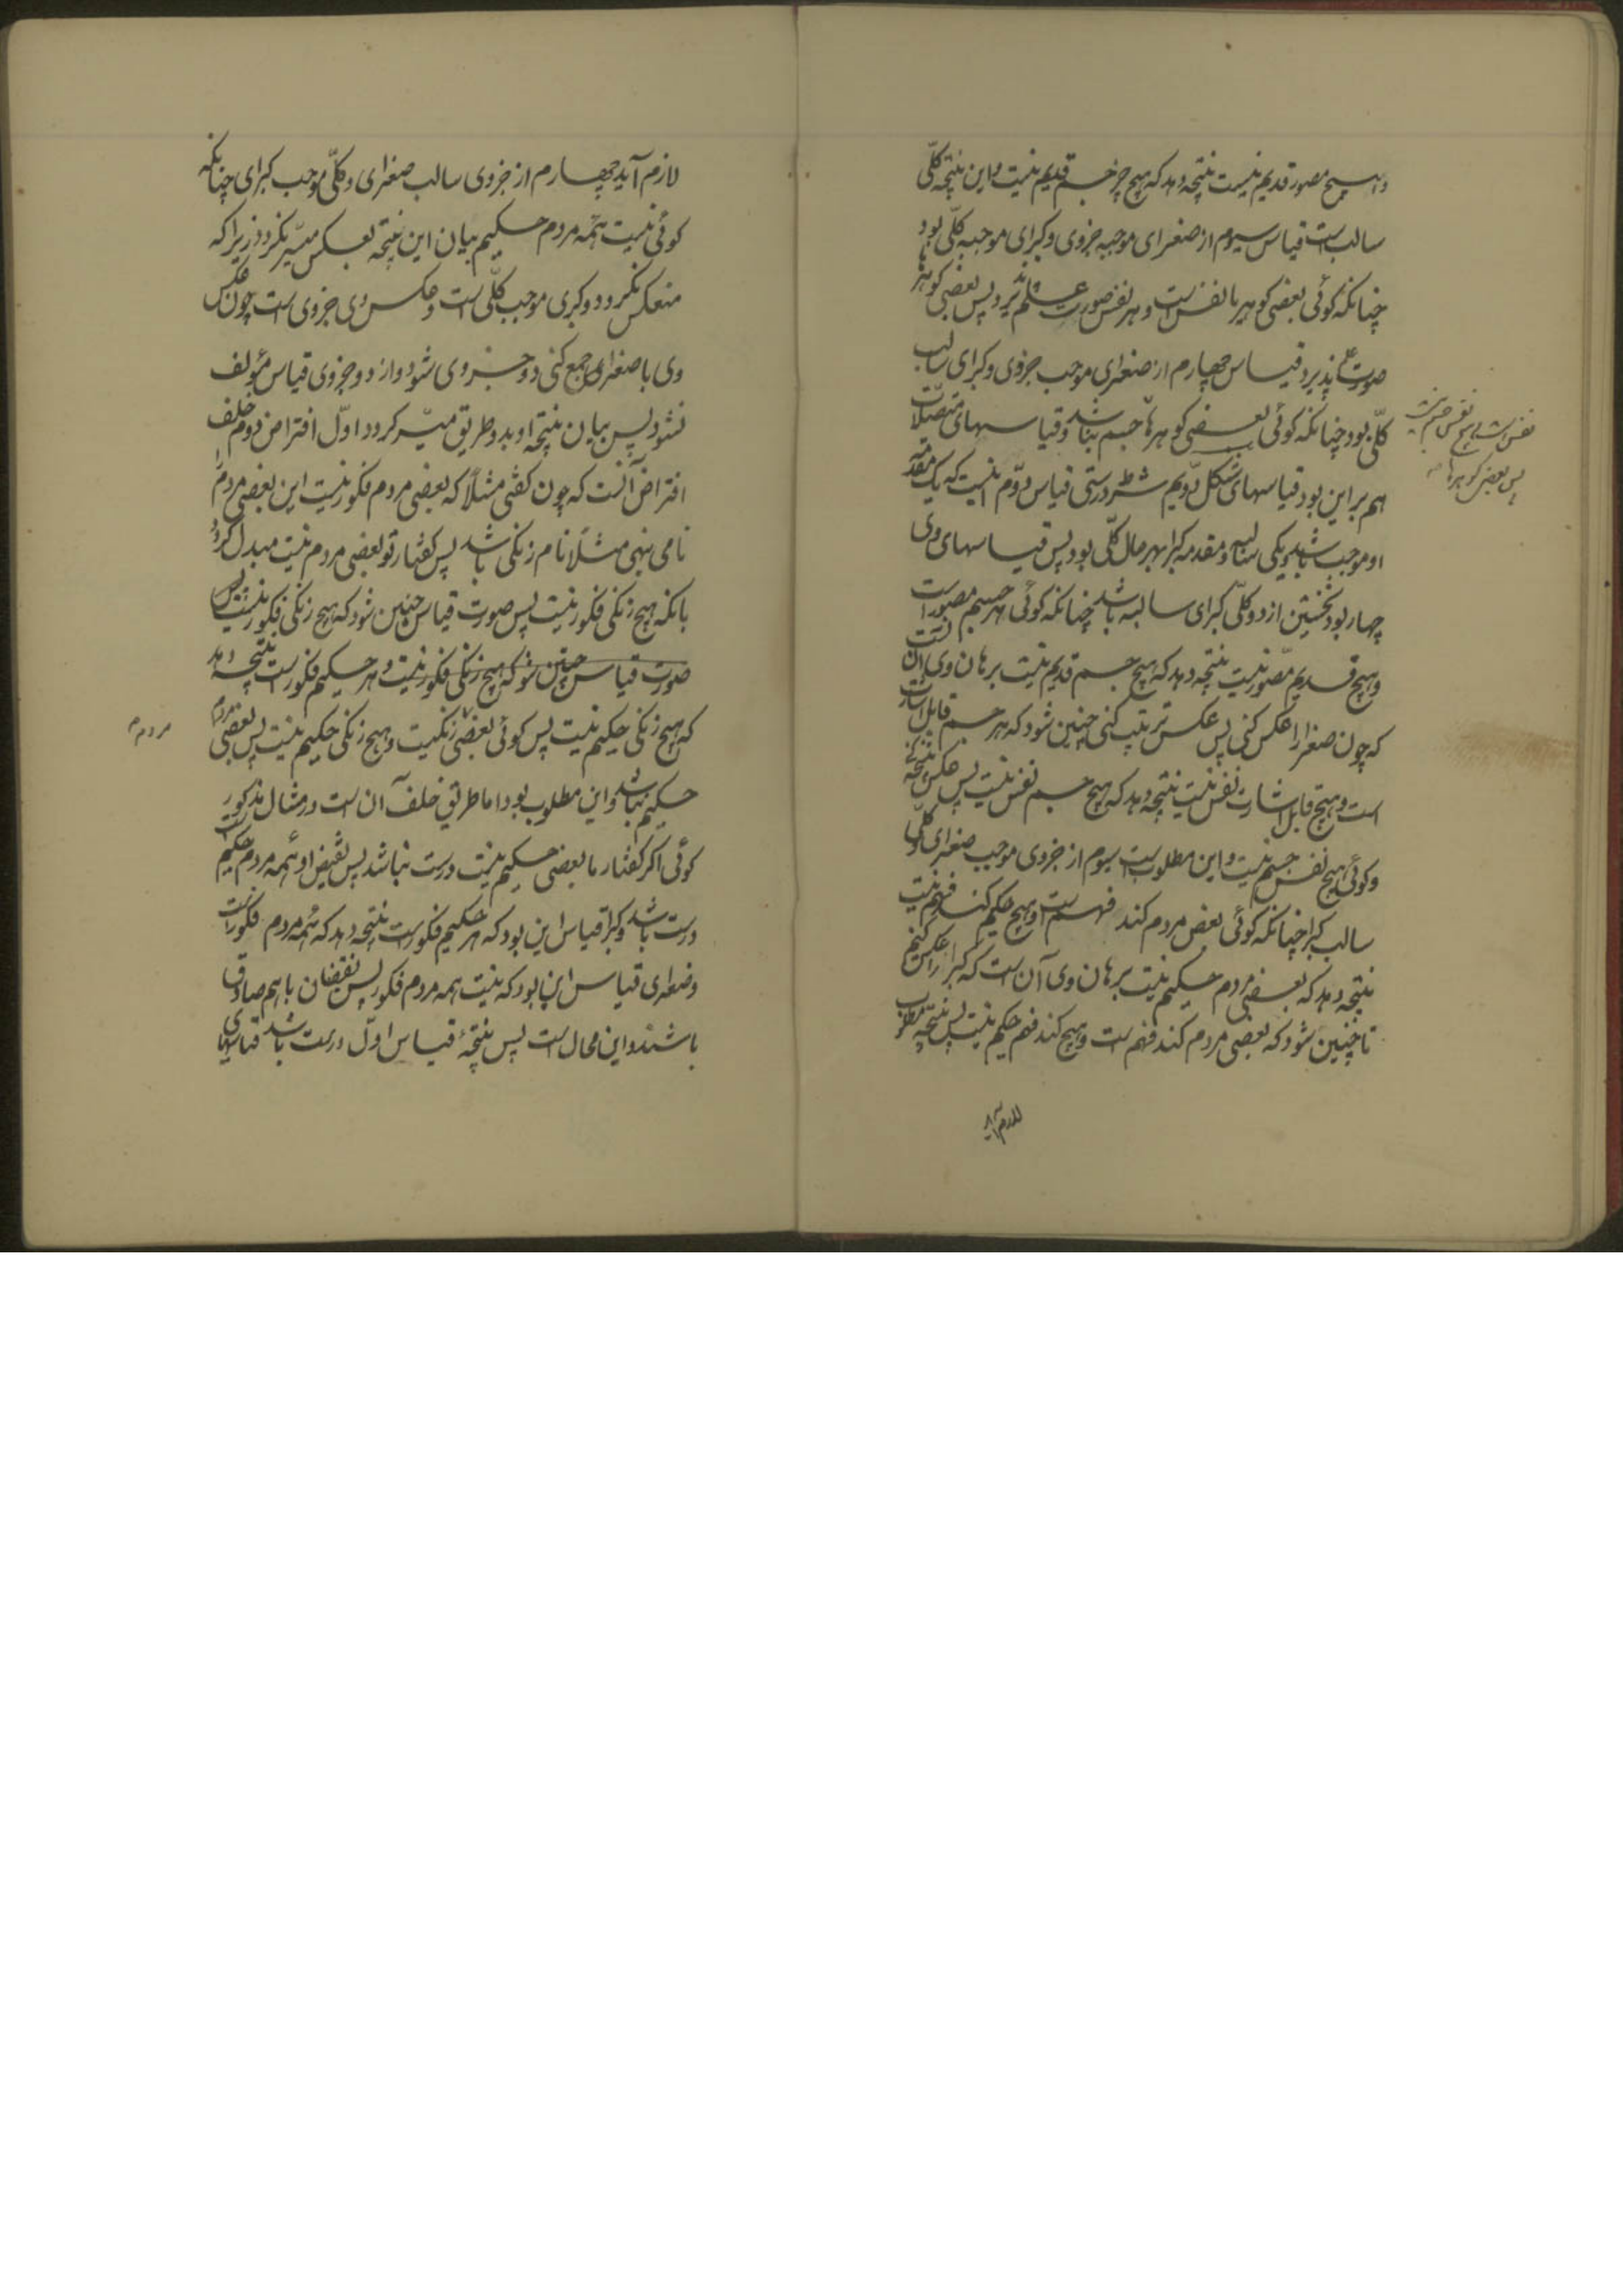 و هیچ مصور قدیم نیست نتیجه دهد که هیچ جسم قدیم نیست و این نتیجه کلّی
سالب است قیاس سیوم از صغرای موجبه جزوی و کبرای موجبه کلّی بود
چنانکه گوئی بعضی گوهرها نفس است و هر نفس صورت علم پذیرد پس بعضی گوهرها
صورت علم پذیرد قیاس چهارم از صغرای موجب جزوی و کبرای سالب
کلّی بود چنانکه گوئی بعضی گوهرها جسم نباشد و قیاسهای متصلات
نفس است و هیچ نفس جسم نیست
پس بعضی گوهرها
هم بر این بود قیاسهای شکل دویم شرط درستی قیاس دوّم آنست که یک مقدمه
او موجب باشد و یکی سالبه و مقدمه کبرا بهر حال کلّی بود پس قیاسهای وی
چهار بود نخستین از دو کلّی کبرای سالبه باشد چنانکه گوئی هر جسم مصور است
و هیچ قدیم مصوّر نیست نتیجه دهد که هیچ جسم قدیم نیست برهان وی آن است
که چون صغرا را عکس کنی پس عکس ترتیب کنی چنین شود که هر جسم قابل اشارت
است و هیچ قابل اشارت نفس نیست نتیجه دهد که هیچ جسم نفس نیست پس عکس نتیجه کنی
و گوئی هیچ نفس جسم نیست و این مطلوب است سیوم از جزوی موجب صغرای و کلّی
سالب کبرا چنانکه گوئی بعضی مردم کند فهم است و هیچ حکیم کند فهم نیست
نتیجه دهد که بعضی مردم حکیم نیست برهان وی آن است که کبرا را عکس کنیم
تا چنین شود که بعضی مردم کند فهم است و هیچ کند فهم حکیم نیست پس نتیجه مطلوب
لازم آید
لازم آید چهارم از جزوی سالب صغرای و کلّی موجب کبرای چنانکه
گوئی نیست همه مردم حکیم بیان این نتیجه بعکس میسّر نگردد زیرا که
منعکس نگردد و کبری موجب کلّی است و عکس وی جزوی است چون عکس
وی با صغرای جمع کنی دو جزوی شود و از دو جزوی قیاس مؤلف
نشود پس بیان نتیجه او بدو طریق میسّر گردد اوّل افتراض دوم خلف
افتراض آنست که چون گفتی مثلاً که بعضی مردم فکور نیست این بعضی مردم را
نامی نهی مثلا نام زنگی باشد پس گفتار تو بعضی مردم نیست مبدل گردد
بانکه هیچ زنگی فکور نیست پس صورت قیاس چنین شود که هیچ زنگی فکور نیست پس
صورت قیاس چنین شود که هیچ زنگی فکور نیست و هر حکیم فکور است نتیجه دهد
که هیچ زنگی حکیم نیست پس گوئی بعضی زنگیست و هیچ زنگی حکیم نیست پس بعضی مردم
مردم
حکیم نباشد و این مطلوب بود اما طریق خلف آن است در مثال مذکور
گوئی اگر گفتار ما بعضی حکیم نیست درست نباشد پس نقیض او همه مردم حکیم است
درست باشد و کبرا قیاس این بود که هر حکیم فکور است نتیجه دهد که همه مردم فکور است
و صغرای قیاس این بود که نیست همه مردم فکور پس نقیضان باهم صادق
باشند و این محال است پس نتیجهٔ قیاس اوّل درست باشد قیاسهای